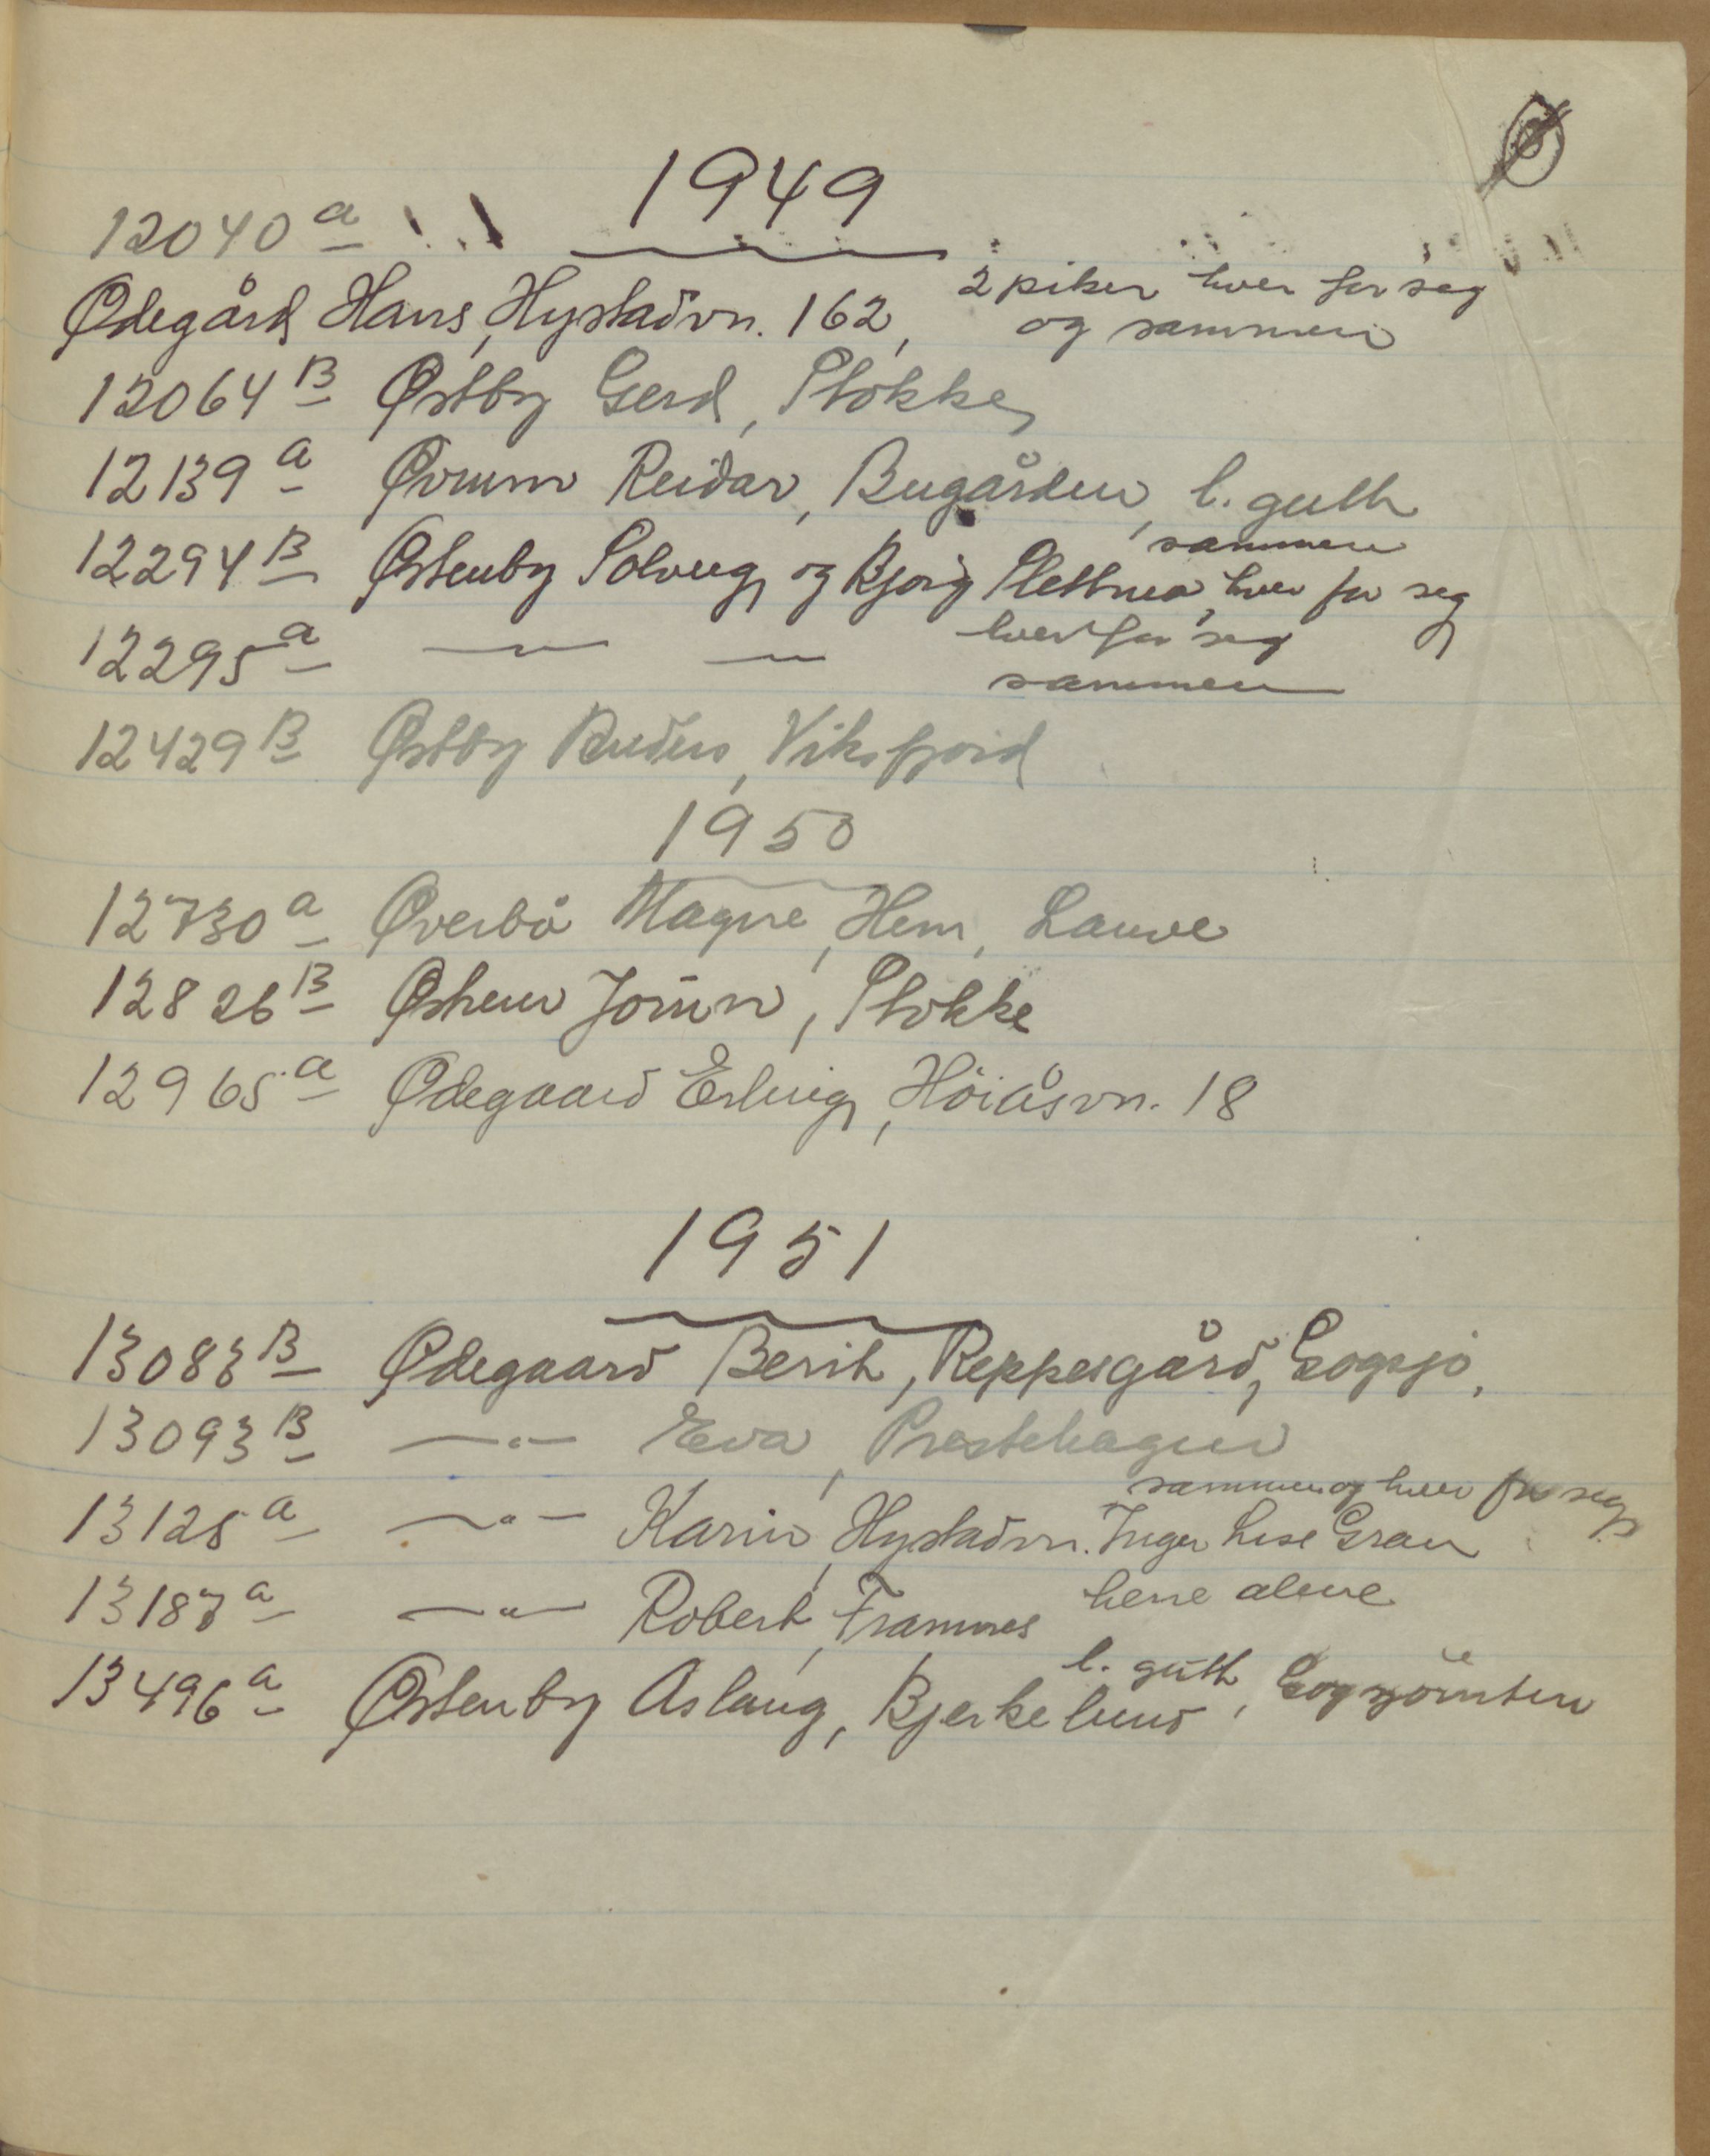 1949
12040 a
Ødegård Hans, Hystadvn. 162, 2 piker hver for seg
og sammen
12064 B Østby Gerd, Stokke,
12139 a Øvrum Reidar, Bugården, l. gutt
sammen
12294 B Østenby Solveig, og Bjørg Slettmea, hver for seg
12295 a — — hver for seg
sammen
12429 B Østby Viksfjord
1950
12730 a Øverbø Magne, Hem, Lauve
12826 B Østrem Jorun, Stokke
12965 a Ødegaard Erling, Höiåsvn. 18
1951
13083 B Ødegaard Berit, Reppesgård, Gogsjø,
13093 B —"— Eva, Prestehagen
sammen og hver for seg
13125 a —"— Karin, Hystadvn. Inger Lise Gran
13187 a —"— Robert, Framnes herre alene
l. gutt
13496 a Østenby Aslaug, Bjerkelund,